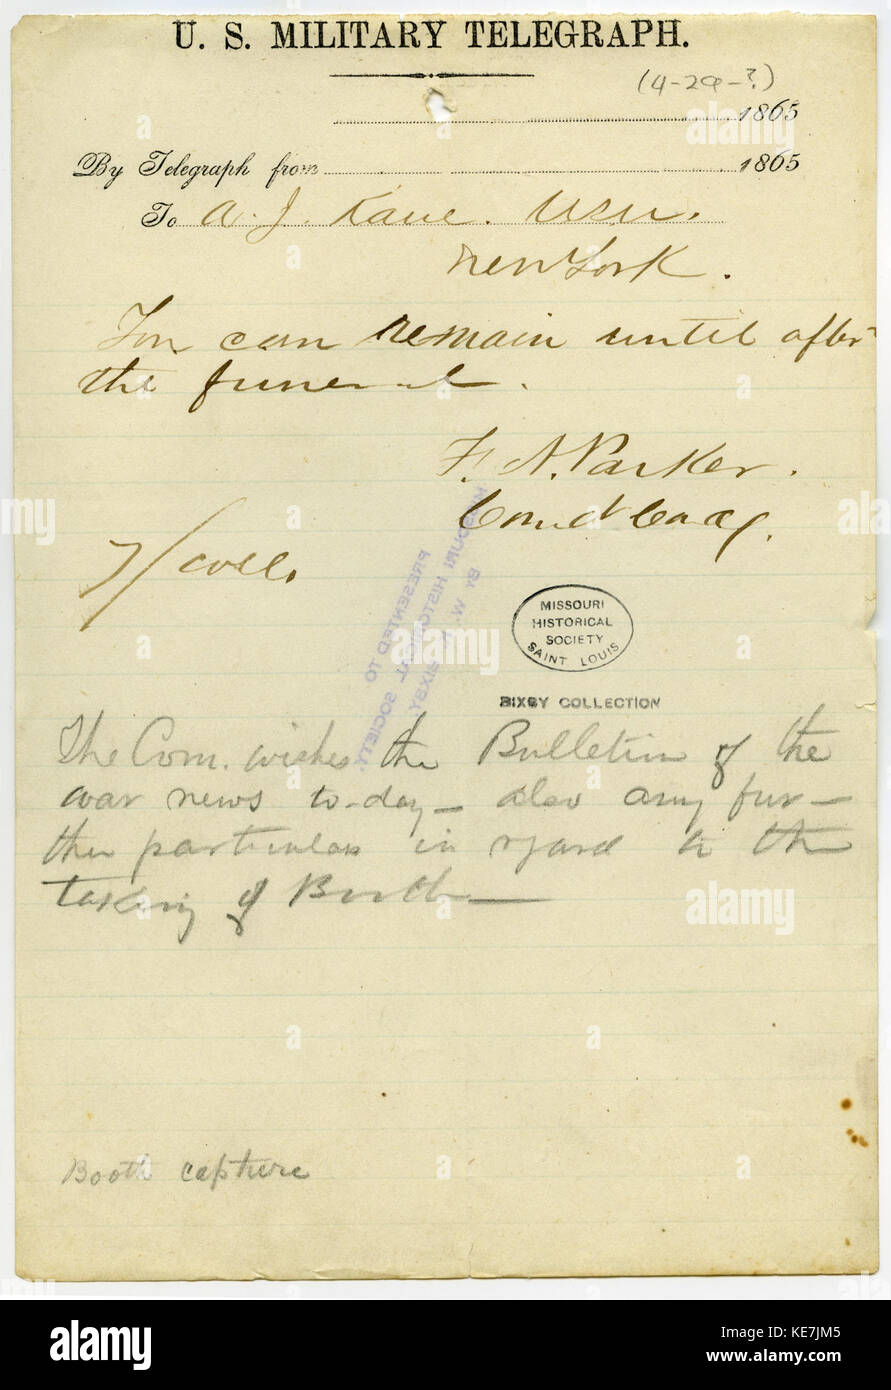 U. S. MILITARY TELEGRAPH.
(4-29-?)
1865
By Telegraph from 1865
To A. J. Kane. USN.
New York.
You can remain until after
the funeral.
F. A. Parker.
Comd
7/ coll.
PRESENTED TO
MISSOURI HISTORICAL SOCIETY.
BY W. K. BIXBY
MISSOURI
HISTORICAL
SOCIETY
SAINT LOUIS
BIXBY COLLECTION
The Com. wishes the Bulletin of the
war news to-day — also any fur—
ther particulars in regard to the
taking of Booth —
Booth capture
alamy
Image ID: KE7JM5
www.alamy.com